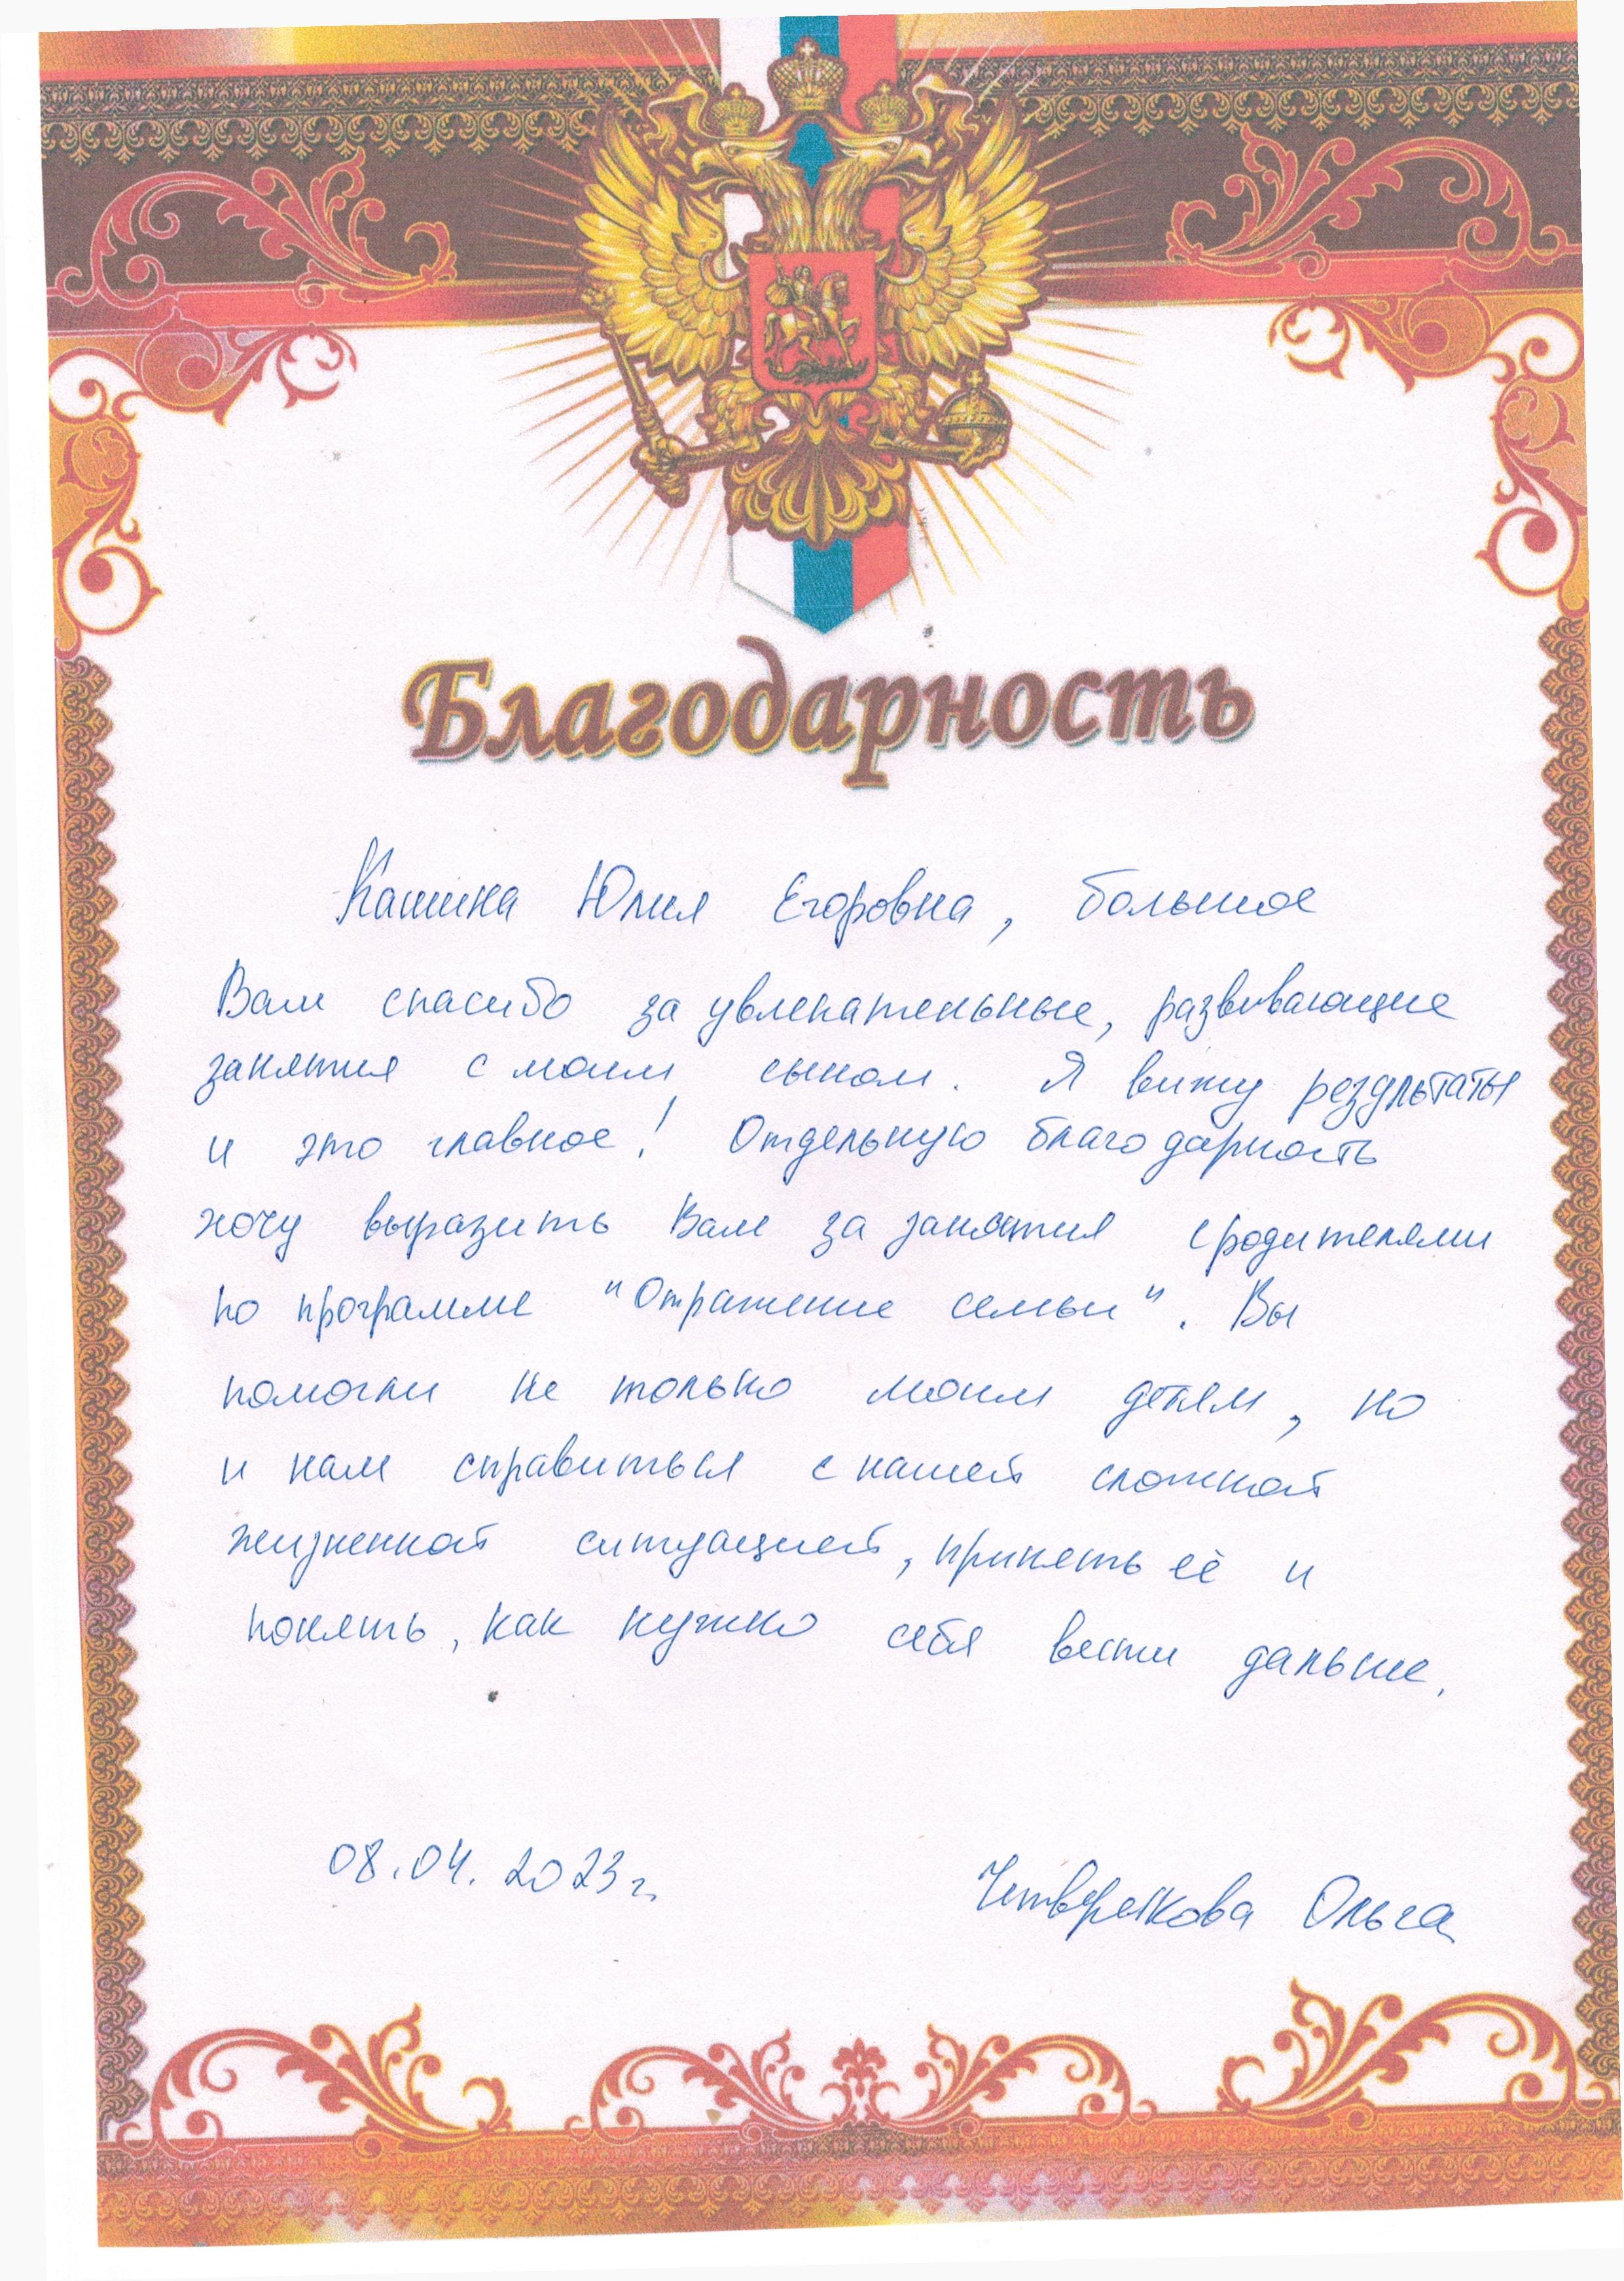 Благодарность
Кашина Юлия Егоровна, большое
Вам спасибо за увлекательные, развивающие
занятия с моим сыном. Я вижу результаты
и это главное! Отдельную благодарность
хочу выразить Вам за занятия с родителями
по программе "Отражение семьи". Вы
помогли не только моим детям, но
и нам справиться с нашей сложной
жизненной ситуацией, принять её и
понять, как нужно себя вести дальше.
08.04.2023 г.
Ольга